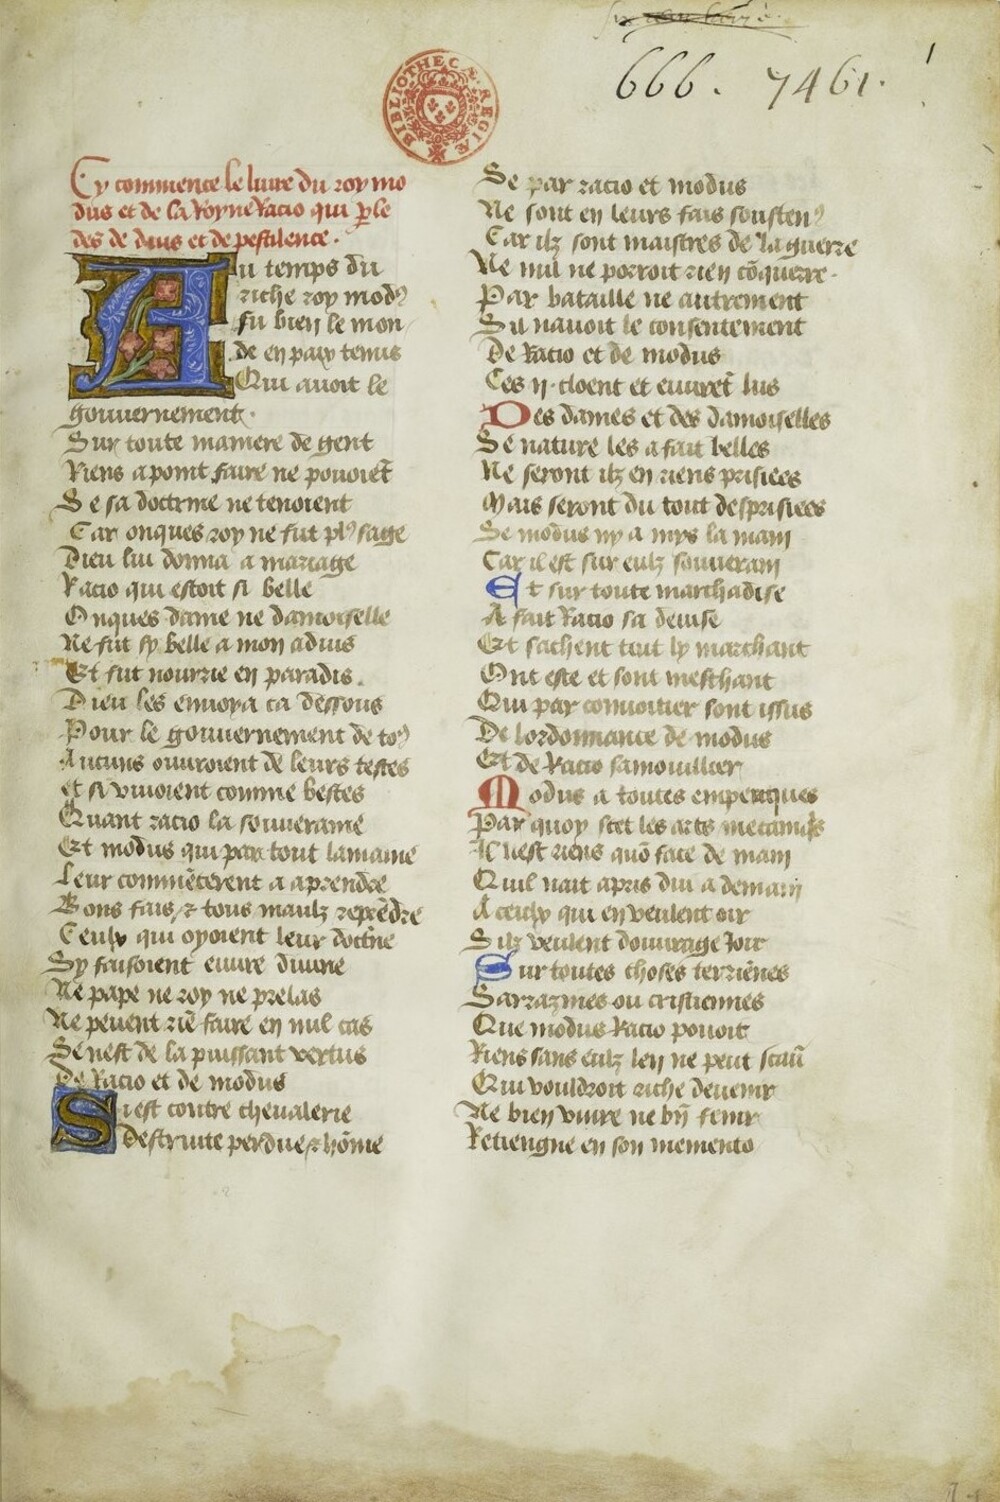 666. 7461.
1
BIBLIOTHECÆ REGIÆ
Cy commence le liure du roy mo
dus et de la Royne Racio qui ple
des de diuis et de pestilence.
Au temps du
riche roy modꝰ
fu bien le mon
de en paix tenus
Qui auoit le
gouuernement.
Sur toute maniere de gent
Riens a point faire ne pouoiēt
Se sa doctrine ne tenoient
Car onques roy ne fut plꝰ sage
Dieu lui donna a mariage
Racio qui estoit si belle
Onques dame ne damoiselle
Ne fut sy belle a mon aduis
Et fut nourrie en paradis.
Dieu les enuoya ca dessous
Pour le gouuernement de toꝰ
Aucuns ouuroient de leurs testes
et si viuoient comme bestes
Quant racio la souueraine
Et modus qui par tout lamaine
Leur commēcerent a aprendre
Bons fais ⁊ tous maulz reprēdre
Ceulx qui oyoient leur doctⁱne
Sy faisoient euure diuine
Ne pape ne roy ne prelas
Ne peuent riē faire en nul cas
Se nest de la puissant vertus
De Racio et de modus
Si est contre cheualerie
Destruite perdue ⁊ hōnie
Se par racio et modus
Ne sont en leurs fais soustenꝰ
Car ilz sont maistres de la guerre
Ne nul ne porroit rien cōquerre.
Par bataille ne autrement
Sil nauoit le consentement
De Racio et de modus
Ces .ij. cloent et euurēt lus
Des dames et des damoiselles
Se nature les a fait belles
Ne seront ilz en riens prisiees
Mais seront du tout desprisiees
Se modus ny a mys la main
Car il est sur eulz souuerain
Et sur toute marchādise
A fait Racio sa deuise
Et sachent tuit ly marchant
Ont este et sont meschant
Qui par conuoitier sont issus
De lordonnance de modus
Et de Racio samouillier
Modus a toutes
Par quoy scet les arts mecaniqs
Il nest riens quō face de main
Quil nait apris dui a demain
A ceulx qui en veulent oir
Silz veulent douurage Joir
Sur toutes choses terriēnes
Sarrazines ou cristiennes
Que modus Racio pouoit
Riens sans eulz len ne peut scauͬ
Qui vouldroit riche deuenir
Ne bien viure ne bn̄ fenir
Retiengne en son memento